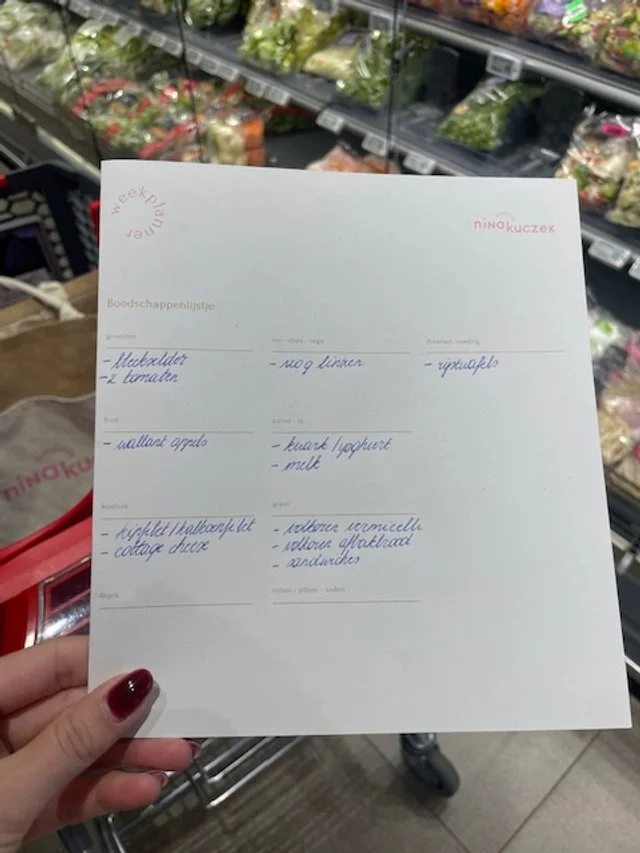 weekplanner
nina kuczek
Boodschappenlijstje
groenten
- bleekselder
- 2 tomaten
vis - vlees - vega
- 110 g linzen
- rijstwafels
fruit
- wallant appels
zuivel - ei
- kwark / yoghurt
- melk
koelvak
- kipfilet / kalkoenfilet
- cottage cheese
graan
- volkoren vermicelli
- volkoren afbakbrood
- sandwiches
drank
noten - pitten - zaden
nina ku